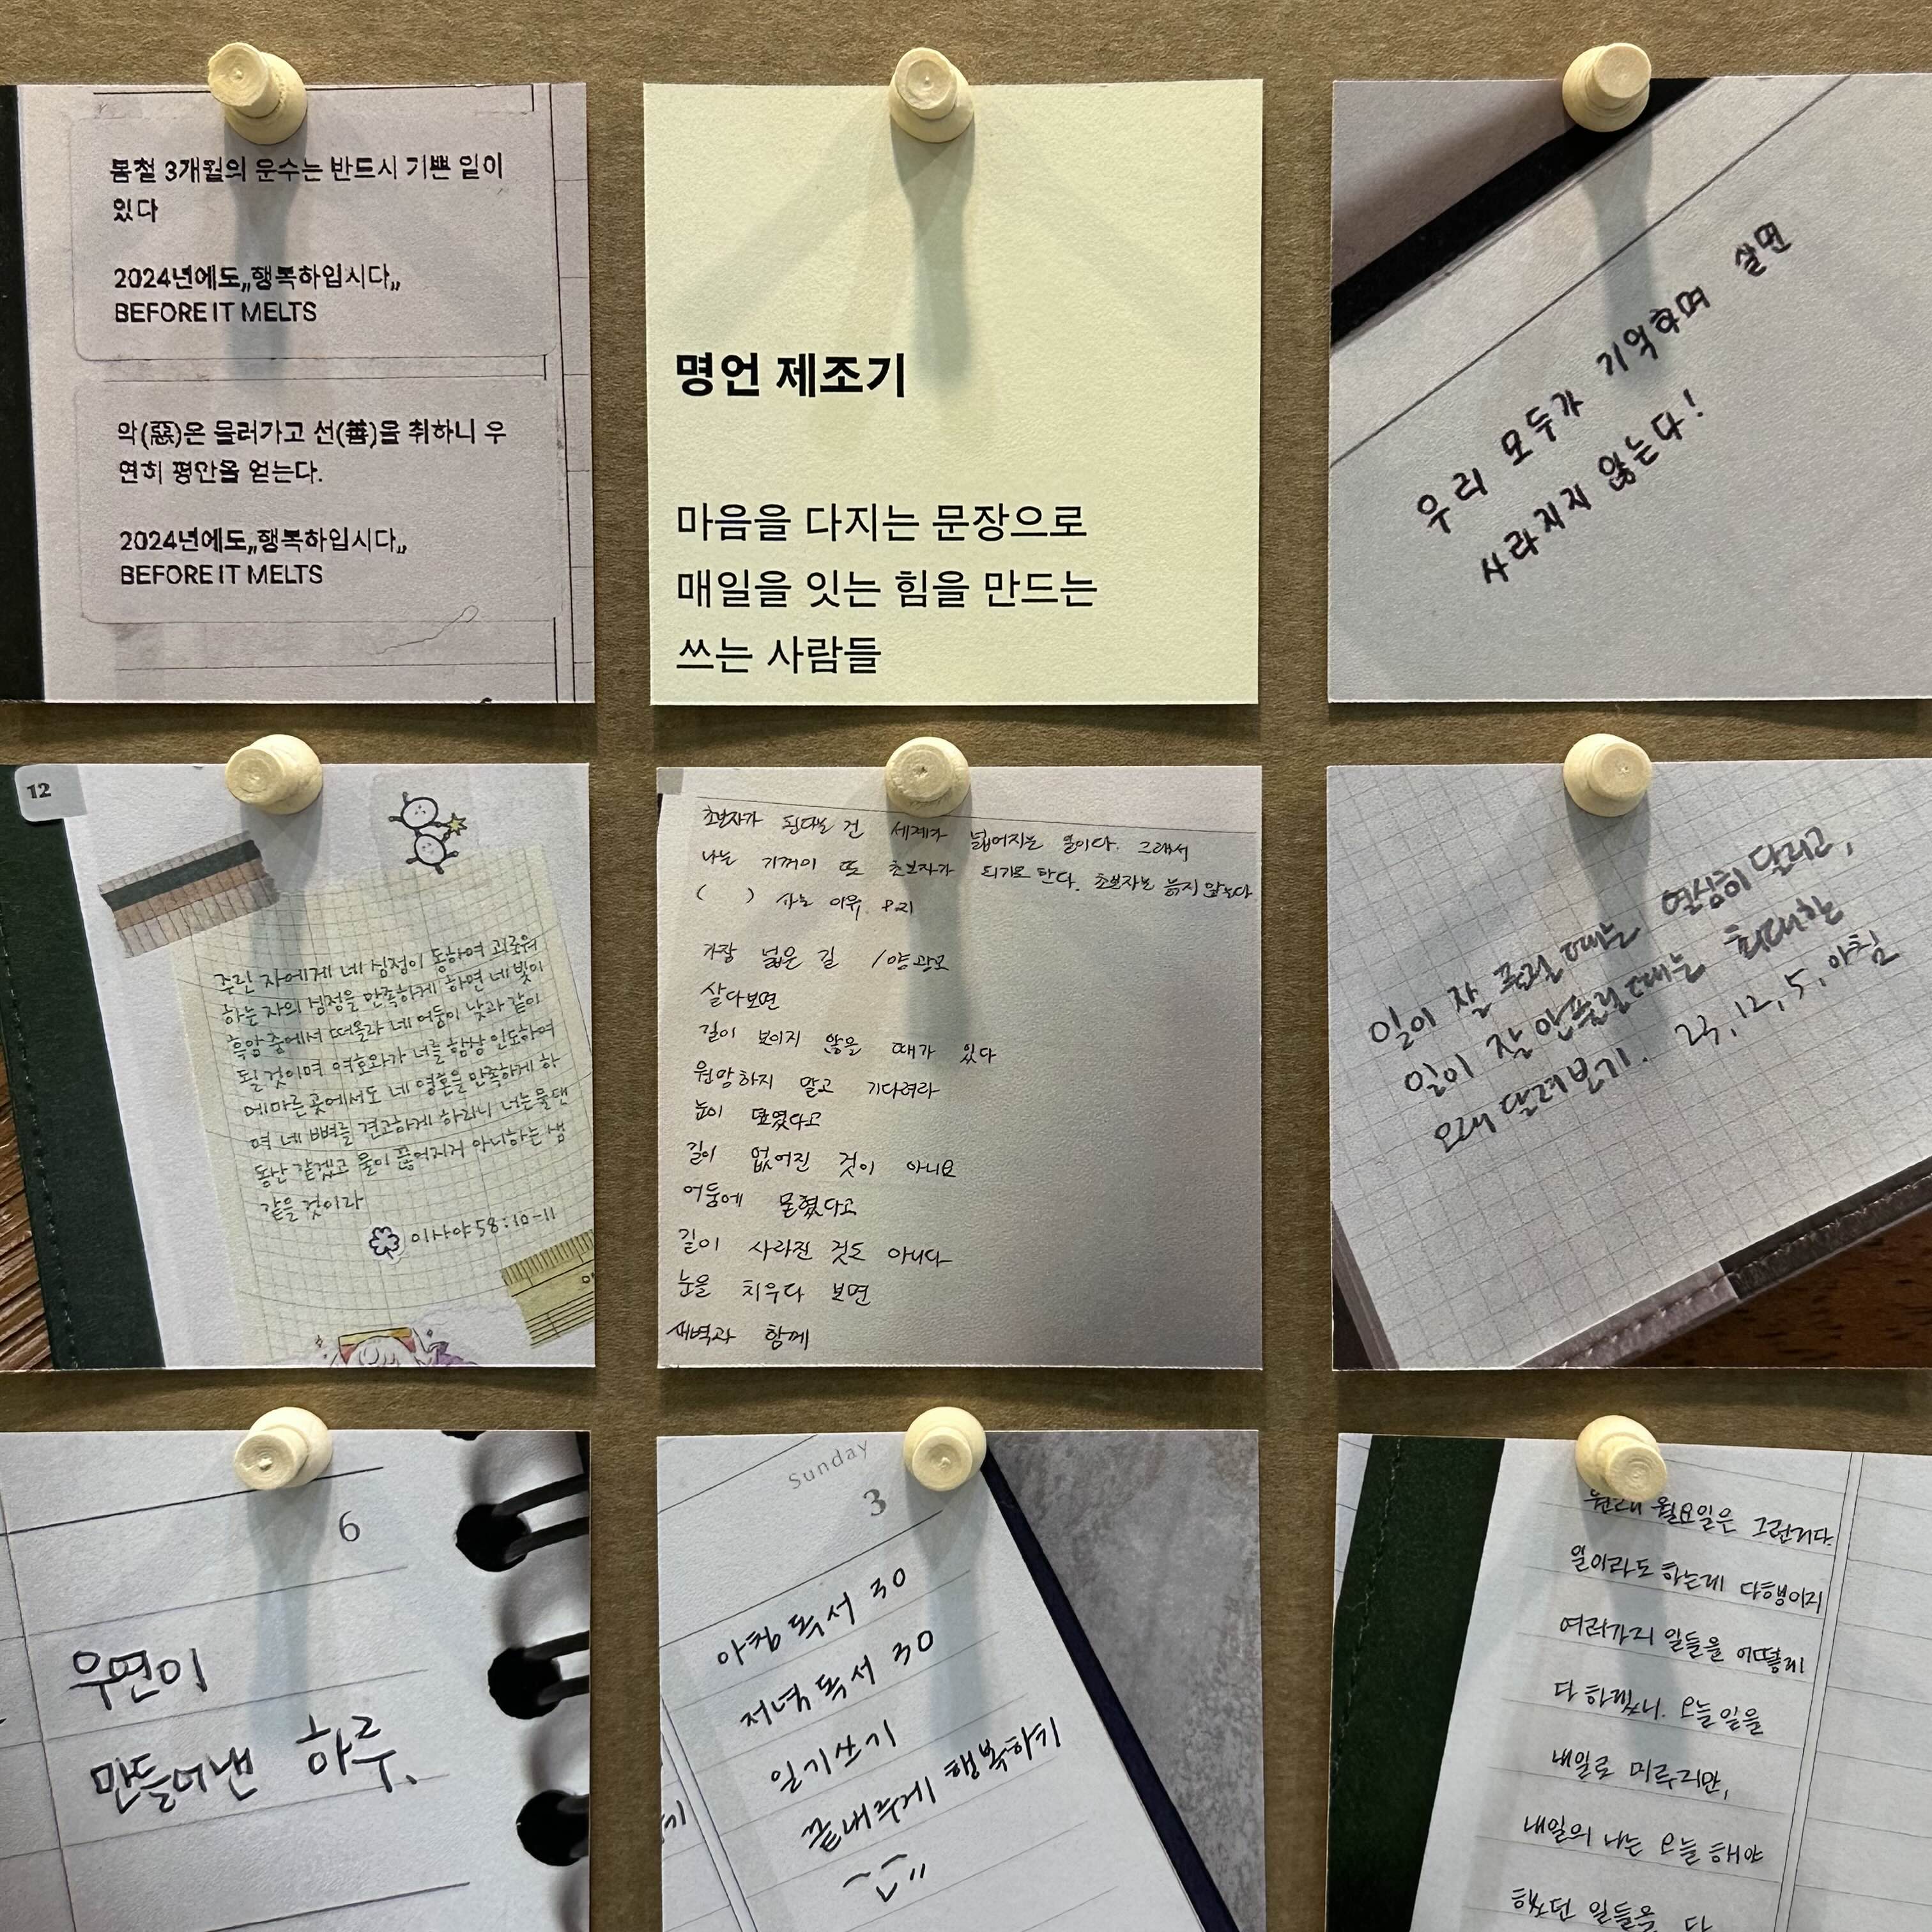 봄철 3개월의 운수는 반드시 기쁜 일이
있다
2024년에도„행복하입시다„
BEFORE IT MELTS
악(惡)은 물러가고 선(善)을 취하니 우
연히 평안을 얻는다.
2024년에도„행복하입시다„
BEFORE IT MELTS
명언 제조기
마음을 다지는 문장으로
매일을 잇는 힘을 만드는
쓰는 사람들
우리 모두가 기억하며 살면
사라지지 않는다!
12
주린 자에게 네 심정이 동하여 괴로워
하는 자의 심정을 만족하게 하면 네 빛이
흑암 중에서 떠올라 네 어둠이 낮과 같이
될 것이며 여호와가 너를 항상 인도하여
메마른 곳에서도 네 영혼을 만족하게 하
며 네 뼈를 견고하게 하리니 너는 물 댄
동산 같겠고 물이 끊어지지 아니하는 샘
같을 것이라
이사야58:10-11
초보자가 된다는 건 세계가 넓어지는 일이다. 그래서
나는 기꺼이 또 초보자가 되기로 한다. 초보자는 늙지 않는다
( ) 사는 이유 P.21
가장 넓은 길 / 양광모
살다보면
길이 보이지 않을 때가 있다
원망하지 말고 기다려라
눈이 덮였다고
길이 없어진 것이 아니요
어둠에 묻혔다고
길이 사라진 것도 아니다
눈을 치우다 보면
새벽과 함께
일이 잘 풀릴 때는 열심히 달리고,
일이 잘 안풀릴 때는 최대한
오래 달려보기. 23, 12, 5, 아침
6
우연이
만들어낸 하루.
Sunday
3
아침 독서 30
저녁 독서 30
일기쓰기
끝내주게 행복하기
원래 월요일은 그런거다.
일이라도 하는게 다행이지
여러가지 일들을 어떻게
다 하겠니. 오늘 일을
내일로 미루지만,
내일의 나는 오늘 해야
했던 일들을 다